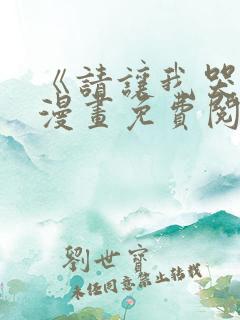 《請讓我哭
漫畫免費閱
劉世寶
未經同意禁止轉載